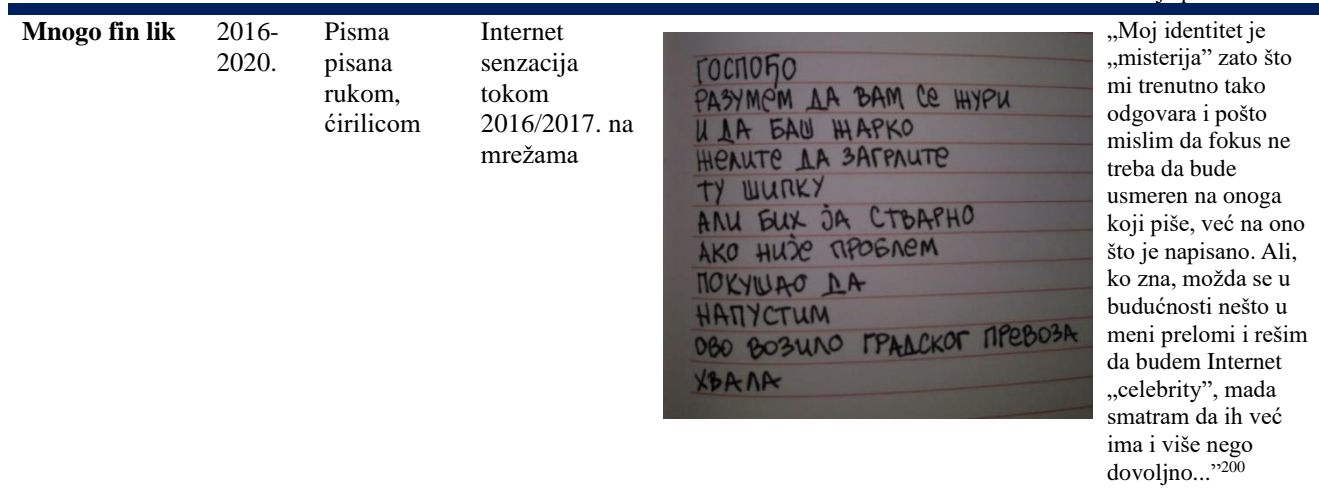 Mnogo fin lik
2016-
2020.
Pisma
pisana
rukom,
ćirilicom
Internet
senzacija
tokom
2016/2017. na
mrežama
ГОСПОЂО
РАЗУМЕМ ДА ВАМ СЕ ЖУРИ
И ДА БАШ ЖАРКО
ЖЕЛИТЕ ДА ЗАГРЛИТЕ
ТУ ШИПКУ
АЛИ БИХ ЈА СТВАРНО
АКО НИЈЕ ПРОБЛЕМ
ПОКУШАО ДА
НАПУСТИМ
ОВО ВОЗИЛО ГРАДСКОГ ПРЕВОЗА
ХВАЛА
„Moj identitet je
„misterija” zato što
mi trenutno tako
odgovara i pošto
mislim da fokus ne
treba da bude
usmeren na onoga
koji piše, već na ono
što je napisano. Ali,
ko zna, možda se u
budućnosti nešto u
meni prelomi i rešim
da budem Internet
„celebrity”, mada
smatram da ih već
ima i više nego
dovoljno...”200